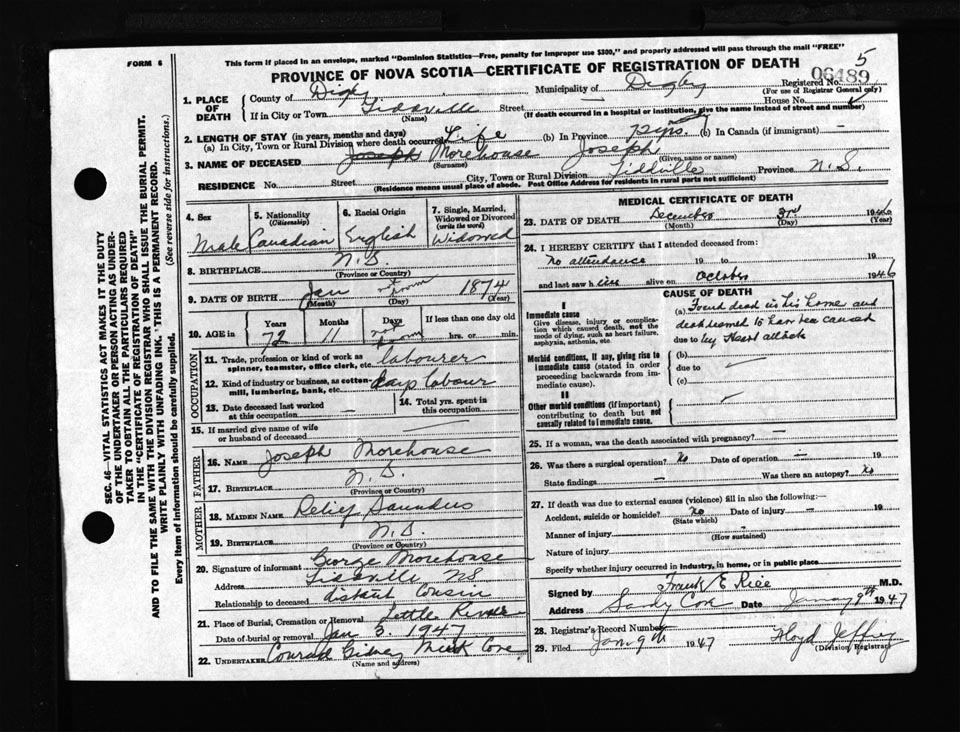 This form if placed in an envelope, marked "Dominion Statistics—Free, penalty for improper use $300," and properly addressed will pass through the mail "FREE"
FORM 6
PROVINCE OF NOVA SCOTIA—CERTIFICATE OF REGISTRATION OF DEATH
5
1. PLACE OF DEATH
County of Digby
Municipality of Digby
Registered No. 06489
(For use of Registrar General only)
If in City or Town Tiddville Street — House No.
(Name) (If death occurred in a hospital or institution, give the name instead of street and number)
2. LENGTH OF STAY (in years, months and days)
(a) In City, Town or Rural Division where death occurred Life (b) In Province 72 yrs. (c) In Canada (if immigrant) —
3. NAME OF DECEASED Joseph Morehouse Joseph
(Surname) (Given name or names)
RESIDENCE No. Street City, Town or Rural Division Tiddville Province N.S.
(Residence means usual place of abode. Post Office Address for residents in rural parts not sufficient)
4. Sex Male
5. Nationality (Citizenship) Canadian
6. Racial Origin English
7. Single, Married, Widowed or Divorced (write the word) Widowed
8. BIRTHPLACE N.S.
(Province or Country)
9. DATE OF BIRTH Jan not known 1874
(Month) (Day) (Year)
10. AGE in Years Months Days If less than one day old
72 11 not known hrs. or min.
OCCUPATION
11. Trade, profession or kind of work as spinner, teamster, office clerk, etc. labourer
12. Kind of industry or business, as cotton mill, lumbering, bank, etc. days labour
13. Date deceased last worked at this occupation —
14. Total yrs. spent in this occupation
15. If married give name of wife or husband of deceased
FATHER
16. NAME Joseph Morehouse
17. BIRTHPLACE N.S.
(Province or Country)
MOTHER
18. MAIDEN NAME Relief Saunders
19. BIRTHPLACE N.S.
(Province or Country)
20. Signature of informant George Morehouse
Address Tiddville N.S.
Relationship to deceased distant cousin
21. Place of Burial, Cremation or Removal Little River
Date of burial or removal Jan 5. 1947
22. UNDERTAKER Conrad Gidney Mink Cove
(Name and address)
MEDICAL CERTIFICATE OF DEATH
23. DATE OF DEATH December 3rd 1946
(Month) (Day) (Year)
24. I HEREBY CERTIFY that I attended deceased from:
no attendance 19 to 19
and last saw him alive on October 1946
CAUSE OF DEATH
I
Immediate cause
Give disease, injury or complication which caused death, not the mode of dying, such as heart failure, asphyxia, asthenia, etc.
(a) Found dead in his home and
death seemed to have been caused
due to by Heart attack
Morbid conditions, if any, giving rise to immediate cause (stated in order proceeding backwards from immediate cause).
(b)
due to
(c)
II
Other morbid conditions (if important) contributing to death but not causally related to immediate cause.
25. If a woman, was the death associated with pregnancy? —
26. Was there a surgical operation? No Date of operation — 19
State findings — Was there an autopsy? No
27. If death was due to external causes (violence) fill in also the following:—
Accident, suicide or homicide? no Date of injury — 19
(State which)
Manner of injury
(How sustained)
Nature of injury
Specify whether injury occurred in industry, in home, or in public place
Signed by Frank E Rice M.D.
Address Sandy Cove Date January 9th 1947
28. Registrar's Record Number
29. Filed Jan. 9th 1947 Floyd Jeffrey
(Division Registrar)
SEC. 46—VITAL STATISTICS ACT MAKES IT THE DUTY
OF THE UNDERTAKER OR PERSON ACTING AS UNDER-
TAKER TO OBTAIN ALL THE PARTICULARS REQUIRED
IN THE "CERTIFICATE OF REGISTRATION OF DEATH"
AND TO FILE THE SAME WITH THE DIVISION REGISTRAR WHO SHALL ISSUE THE BURIAL PERMIT.
WRITE PLAINLY WITH UNFADING INK. THIS IS A PERMANENT RECORD.
(See reverse side for instructions.)
Every item of information should be carefully supplied.